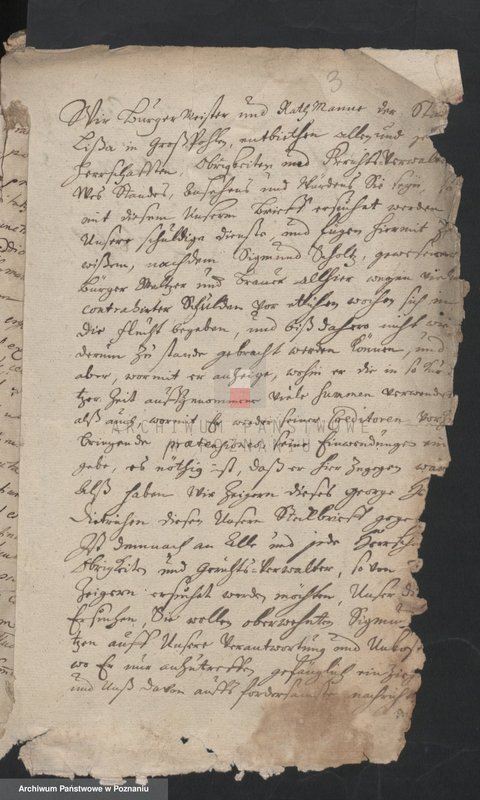 3
Wir Bürger Meister und Rath Manne der Stad
Lißa in Groß Pohlen, entbiethen allen und
Herrschafften, Obrigkeiten und Gerichts-Verwalte
Wes Standes, Ansehens und Würdens Sie seyn,
mit diesem Unserm Brieff ersuchet werden
Unsere schuldige Dienste, und fügen hiermit zu
wißen, nachdem Sigmund Scholtz, gewesener
Bürger Meltzer und Brauer allhier wegen vieler
contrahirter Schulden vor etlichen wochen sich in
die flucht begeben, und biß dahero nicht wie
derum zu stande gebracht werden können, und
aber, wormit er anzeige, wohin er die in so kur
tzer Zeit auffgenommene viele Summen verwendet
alß auch, wormit Er wieder seiner Creditoren vor
bringende praetensiones seine Einwendungen
gebe, es nöthig ist, daß er hier zugegen
Alß haben Wir Zeigern dieses George
Dietrichen diesen Unsern Steckbrieff gege
Ist demnach an Alle und jede Herrsch
Obrigkeiten und Gerichts-Verwalter, so von
Zeigern ersuchet werden möchten, Unser
Ersuchen, Sie wollen oberwehnten Sigmun
tzen auff Unsere Verantwortung und Unkost
wo Er nur anzutreffen gefänglich einzieh
und Unß davon auffs forderfamste nachricht
ARCHIWUM PAŃSTWOWE
W POZNANIU
Archiwum Państwowe w Poznaniu